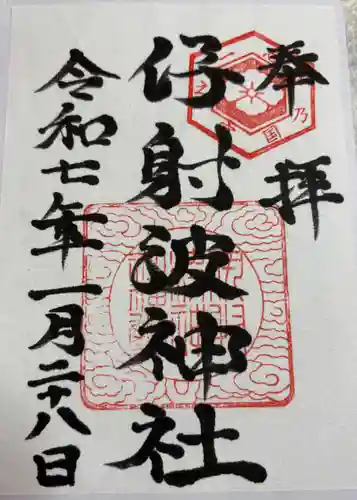 奉拝
仔射波神社
令和七年一月二十八日